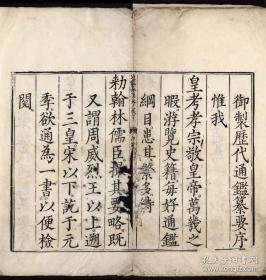 御製歷代通鑑纂要序
惟我
皇考孝宗敬皇帝萬幾之
暇游覽史籍每好通鑑
綱目患其繁多嘗
勅翰林儒臣撮其要略既
又謂周威烈王以上遡
于三皇宋以下訖于元
季欲通為一書以便檢
閱